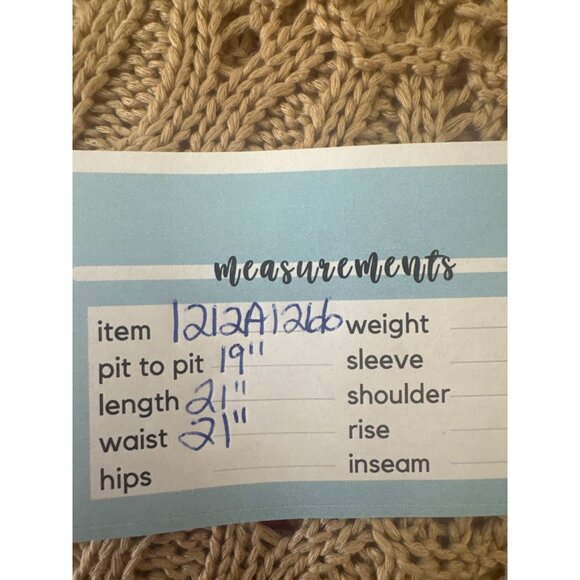 measurements
item 1212A1266 weight
pit to pit 19" sleeve
length 21" shoulder
waist 21" rise
hips inseam